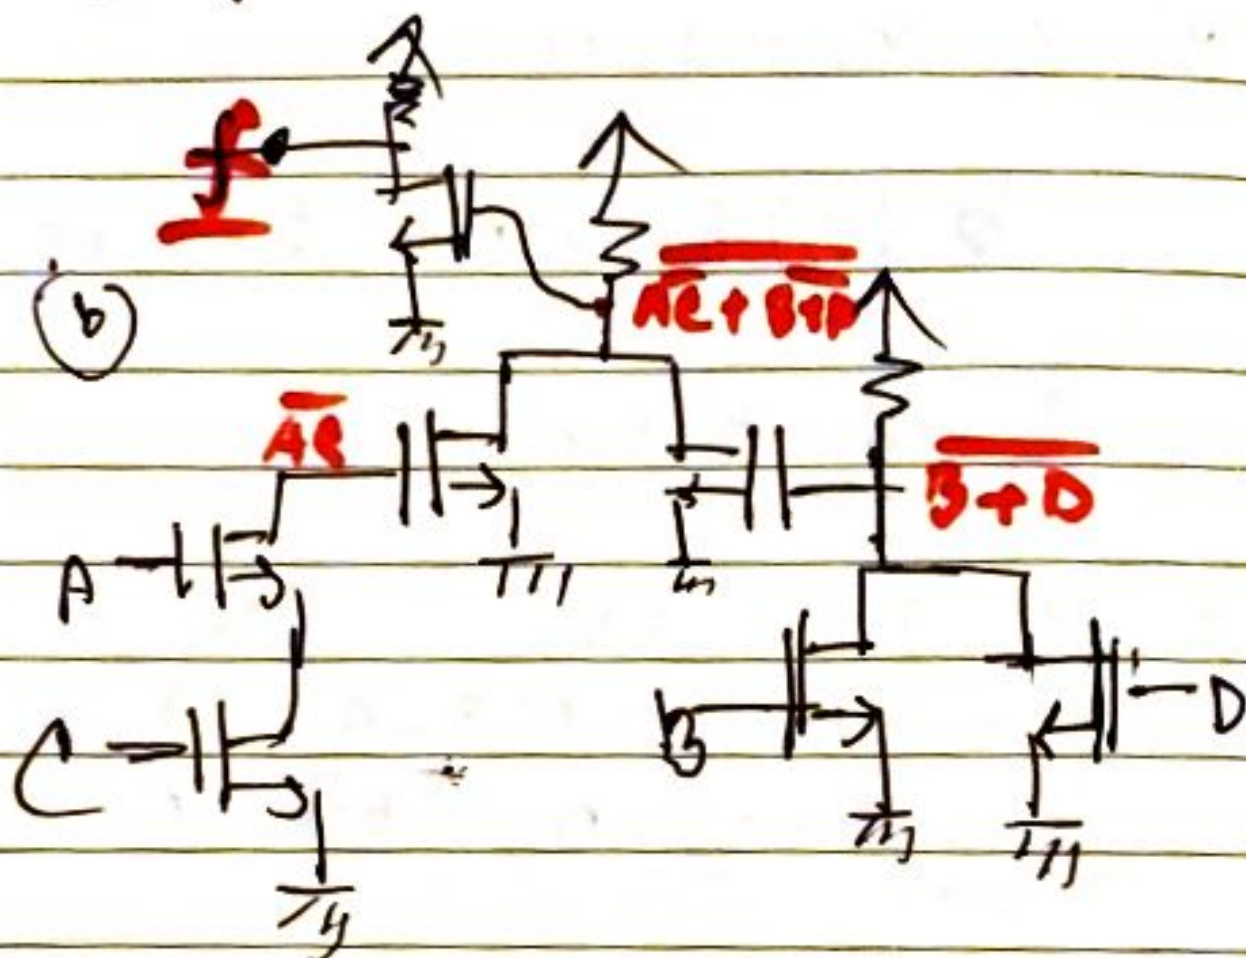 f
b
A̅C̅ + B̅+̅D̅
A̅C̅
B̅+̅D̅
A
C
B
D